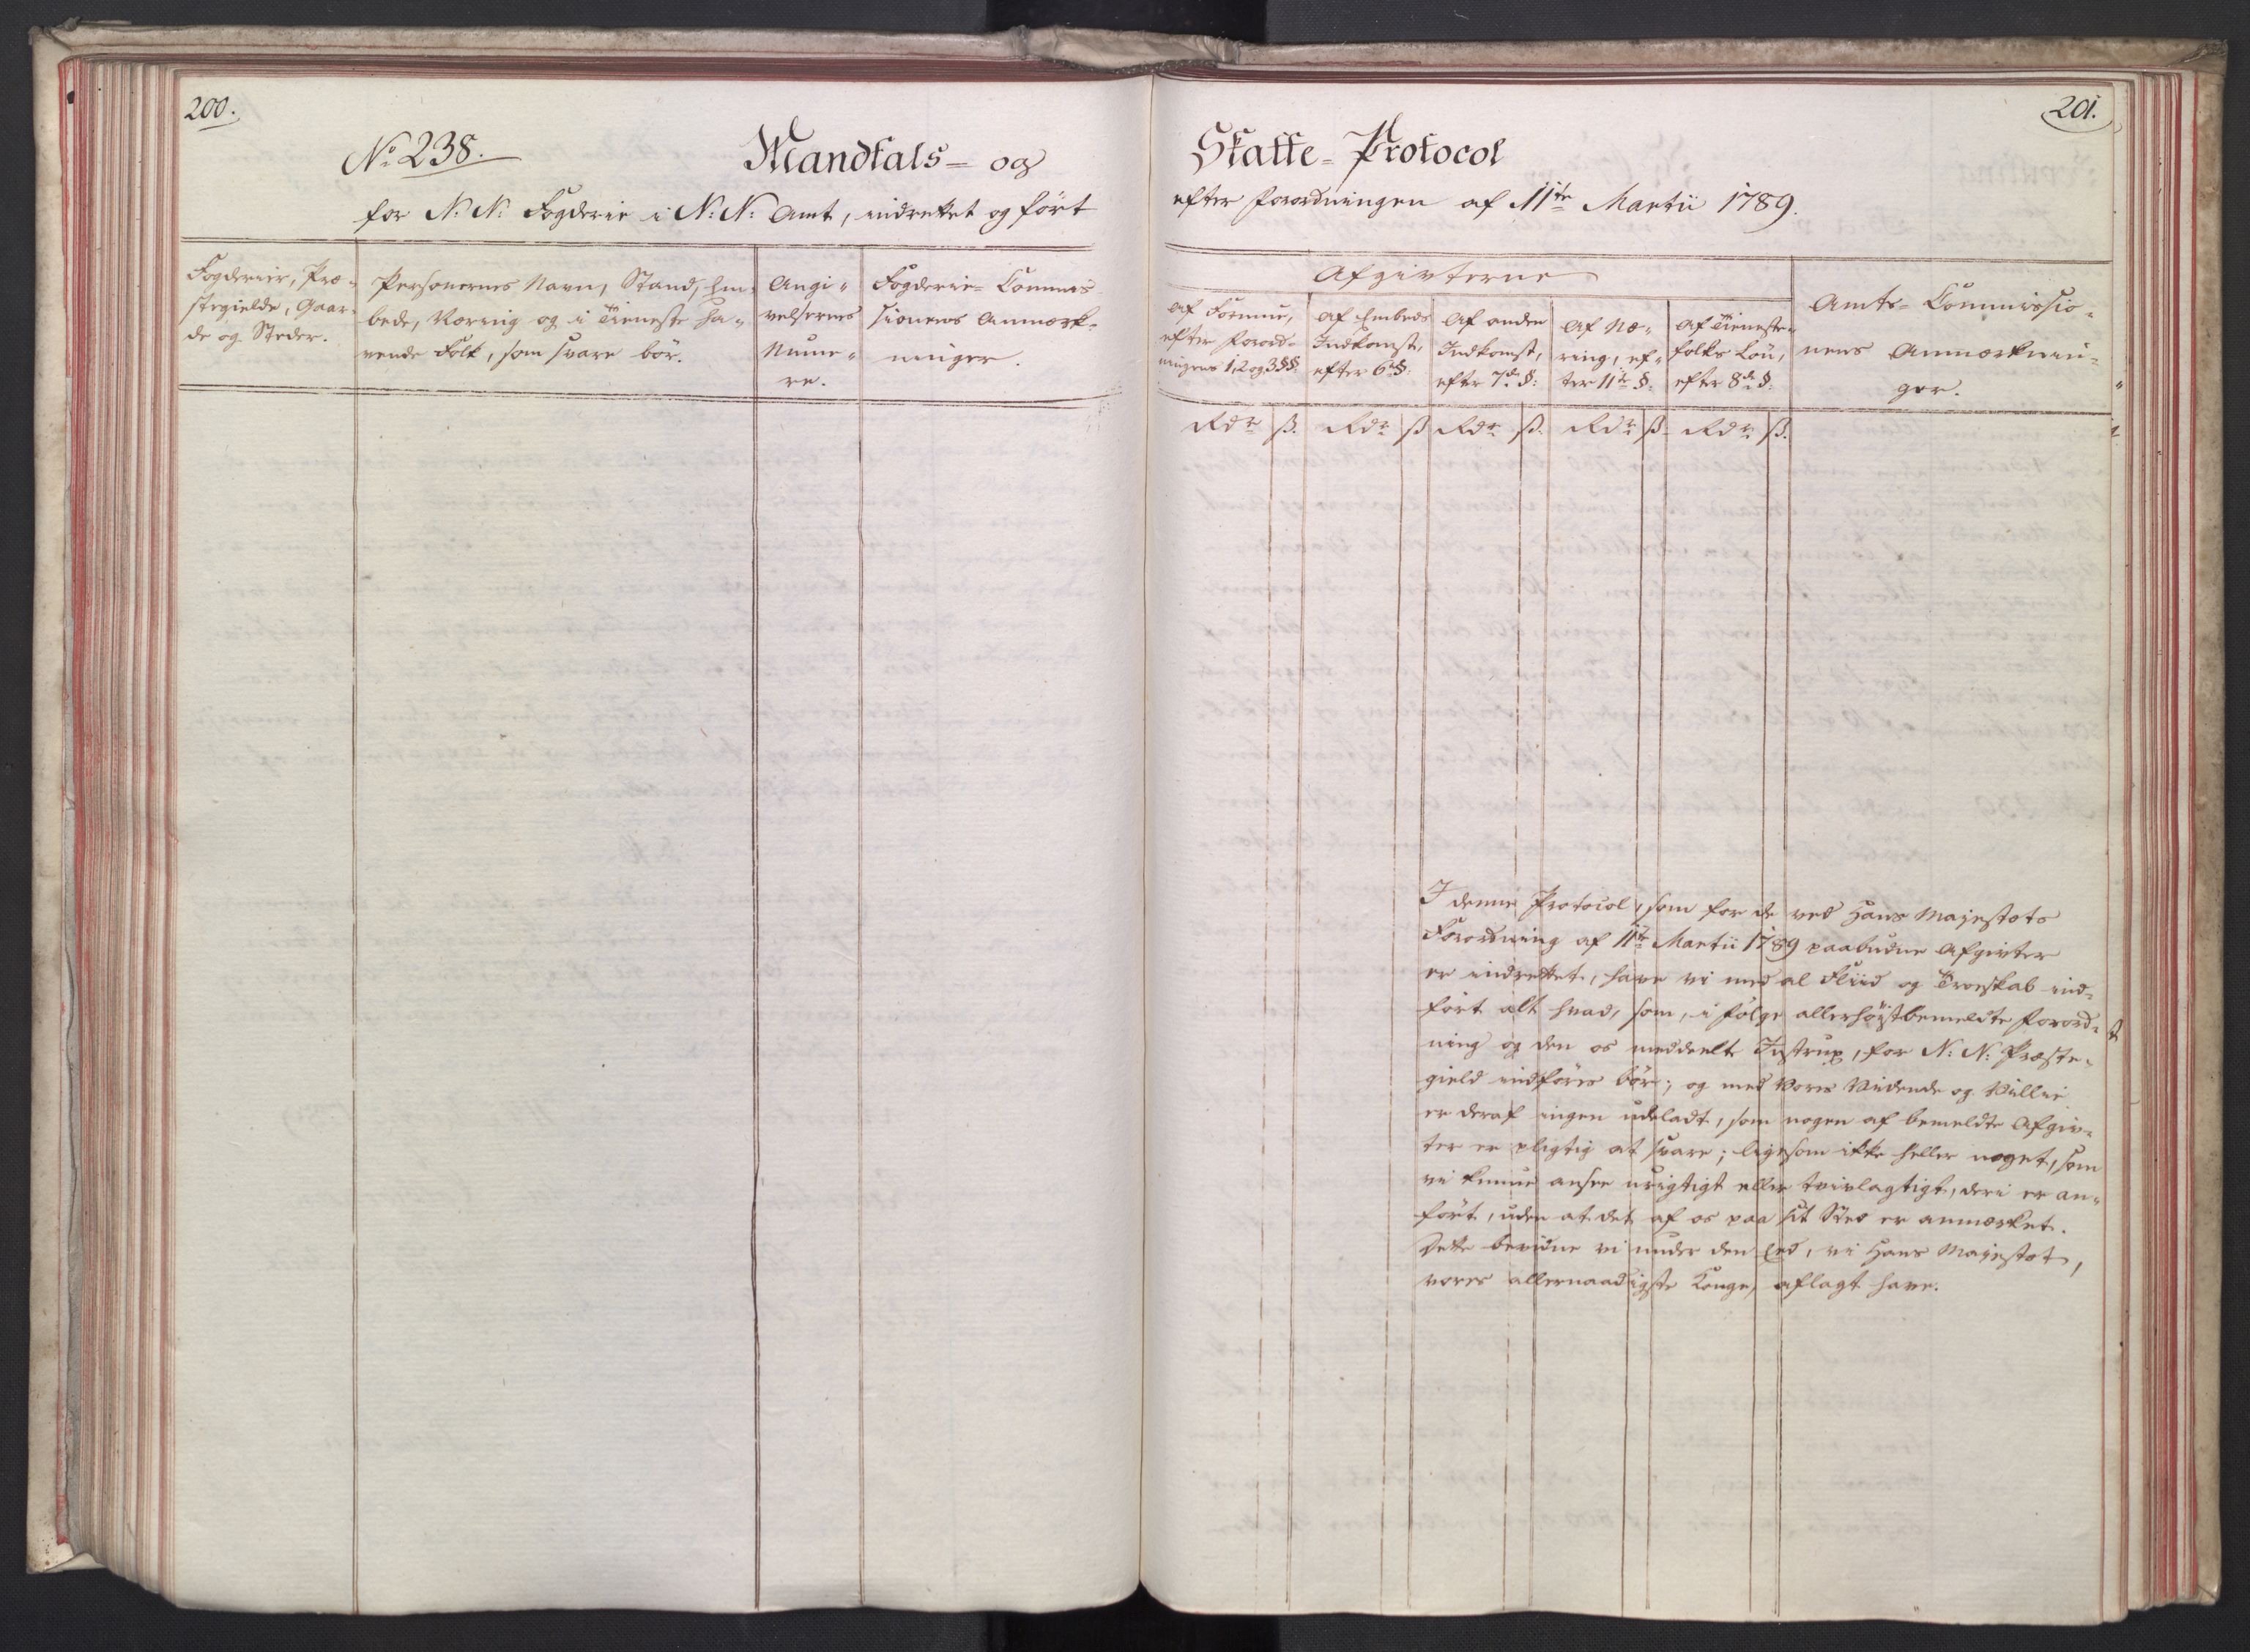 200.
No 238.
Mandtals- og
for N: N: Fogderie i N: N: Amt, indrettet og ført
Fogderier, Præ-
stegielde, Gaar-
de og Steder.
Personernes Navn, Stand, Em-
bede, Næring og i Tieneste ha-
vende Folk, som svare bør.
Angi-
velsernes
Nume-
re.
Fogderie-Commis-
sionens Anmærk-
ninger.
201.
Skatte-Protocol
efter Forordningen af 11te Martii 1789.
Afgivterne
Af Formue,
efter Forord-
ningens 1, 2 og 3 §§:
Af Embeds
Indkomst,
efter 6te §:
Af anden
Indkomst,
efter 7de §:
Af Næ-
ring, ef-
ter 11te §:
Af Tieneste-
folks Løn,
efter 8de §:
Amts-Commissio-
nens Anmærknin-
ger.
Rdr ß. Rdr ß Rdr ß. Rdr ß. Rdr ß.
I denne Protocol, som for de ved Hans Majestæts
Forordning af 11te Martii 1789 paabudne Afgivter
er indrettet, have vi med al Fliid og Troeskab ind-
ført alt hvad, som, i følge allerhøistbemeldte Forord-
ning og den os meddeelte Instrux, for N: N: Præste-
gield indføres bør; og med Vores Vidende og Villie
er deraf ingen udeladt, som nogen af bemeldte Afgiv-
ter er pligtig at svare; ligesom ikke heller noget, som
vi kunne ansee urigtigt eller tvivlagtigt, deri er an-
ført, uden at det af os paa sit Sted er anmærket.
Dette bevidne vi under den Eed, vi Hans Majestæt,
vores allernaadigste Konge, aflagt have.